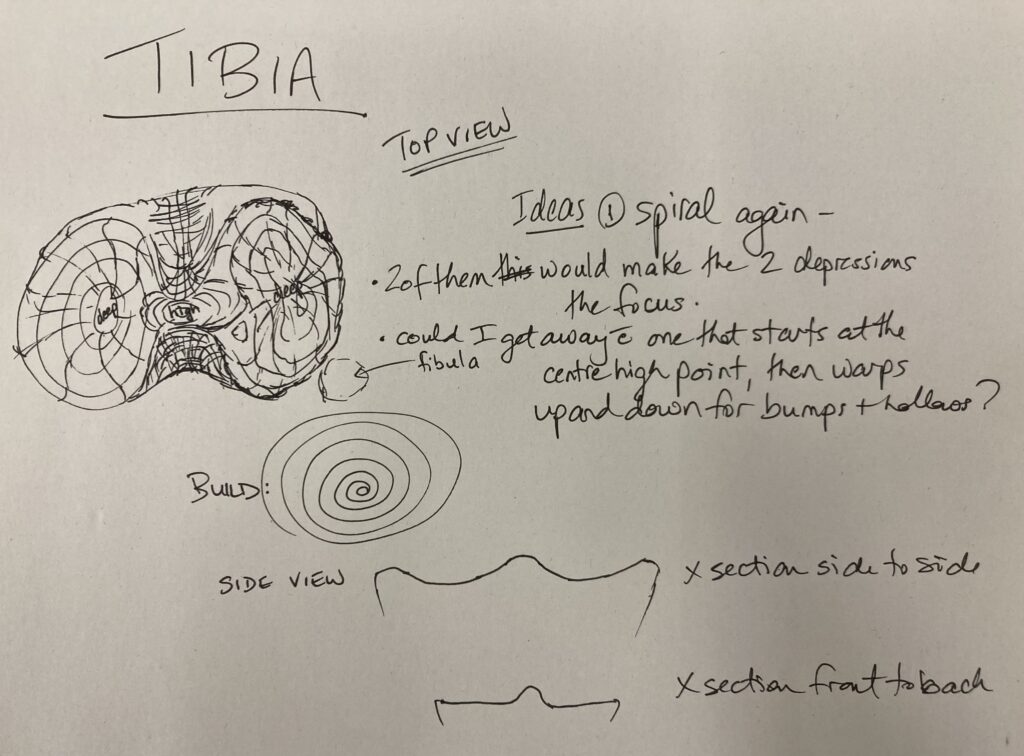 TIBIA
TOP VIEW
deep
high
deep
fibula
Ideas ① spiral again -
• 2 of them this would make the 2 depressions
the focus.
• could I get away c̄ one that starts at the
centre high point, then warps
up and down for bumps + hollows?
BUILD:
SIDE VIEW
x section side to side
x section front to back